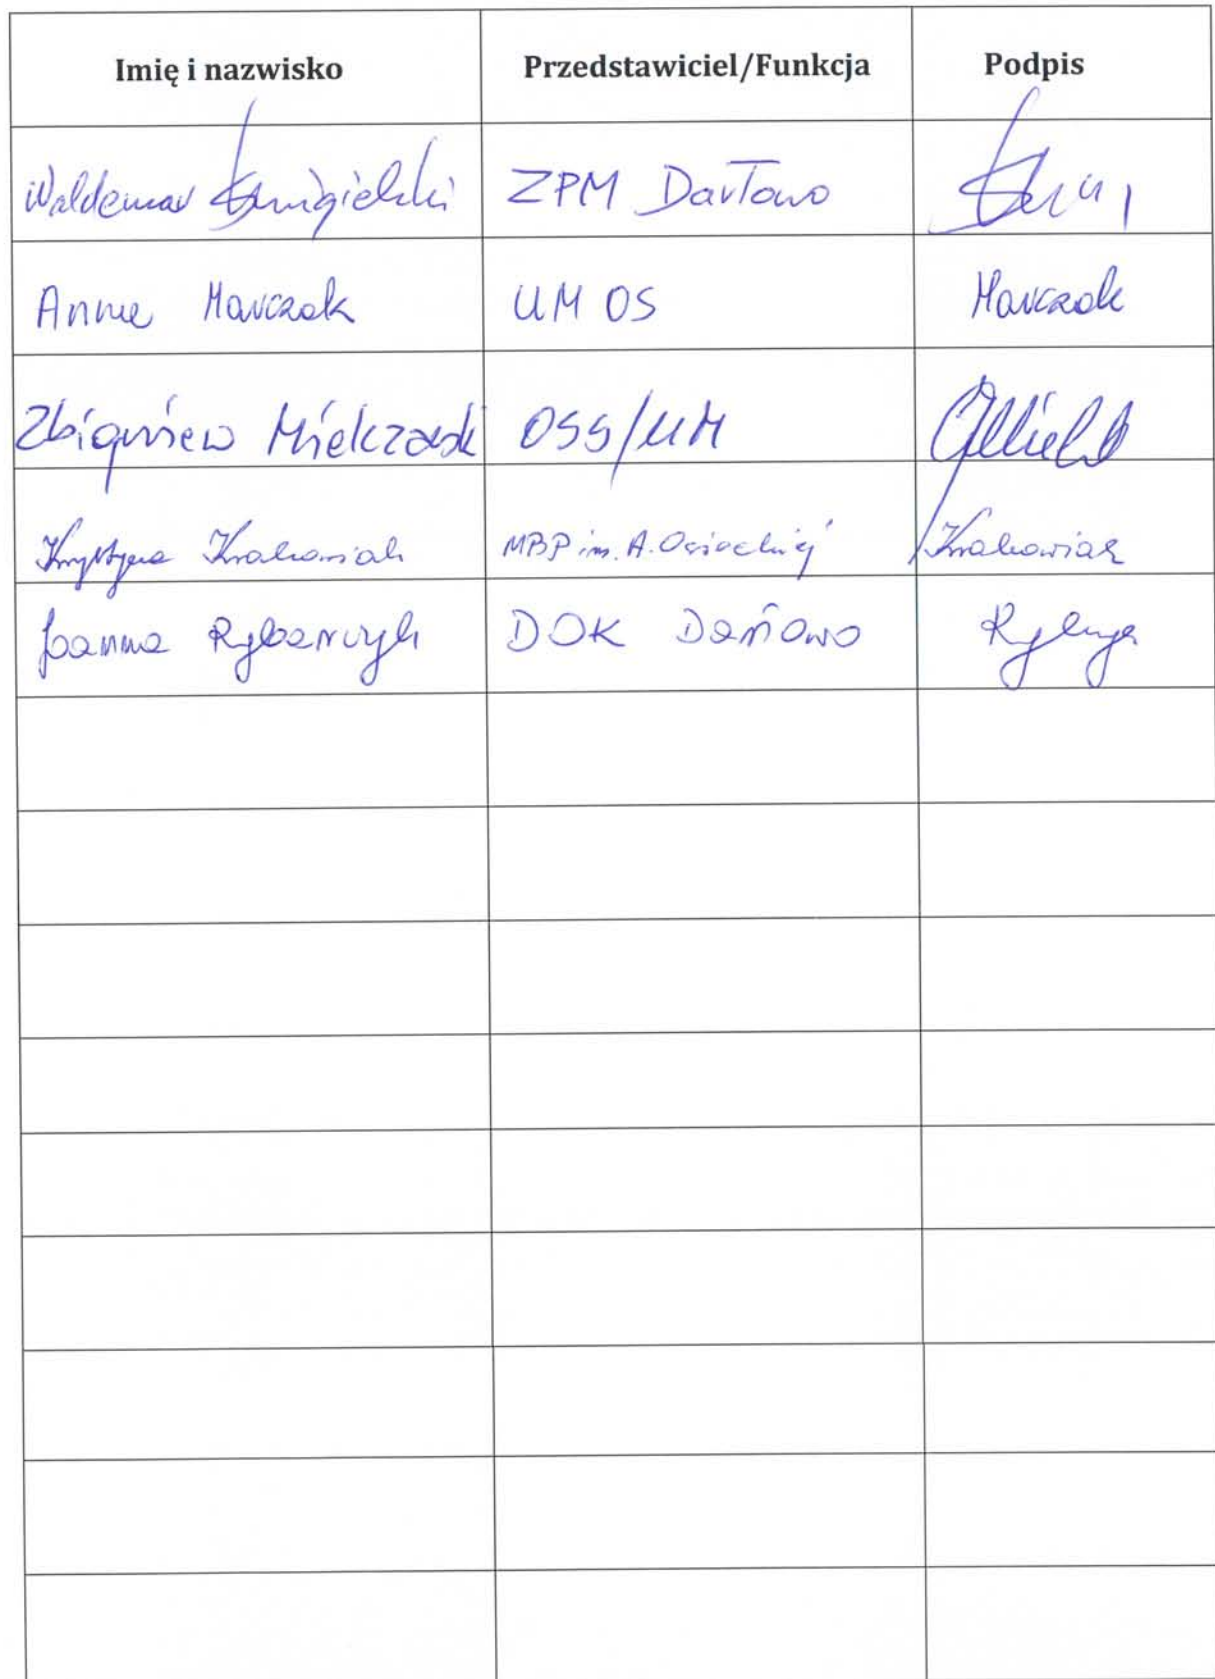 Imię i nazwisko Przedstawiciel/Funkcja Podpis
Waldemar Śmigielski ZPM Darłowo
Anna Marczak UM OS Marczak
Zbigniew Mielczarek OSS/UM
Krystyna Krakowiak MBP im. A. Osieckiej Krakowiak
Joanna Rybarczyk DOK Darłowo